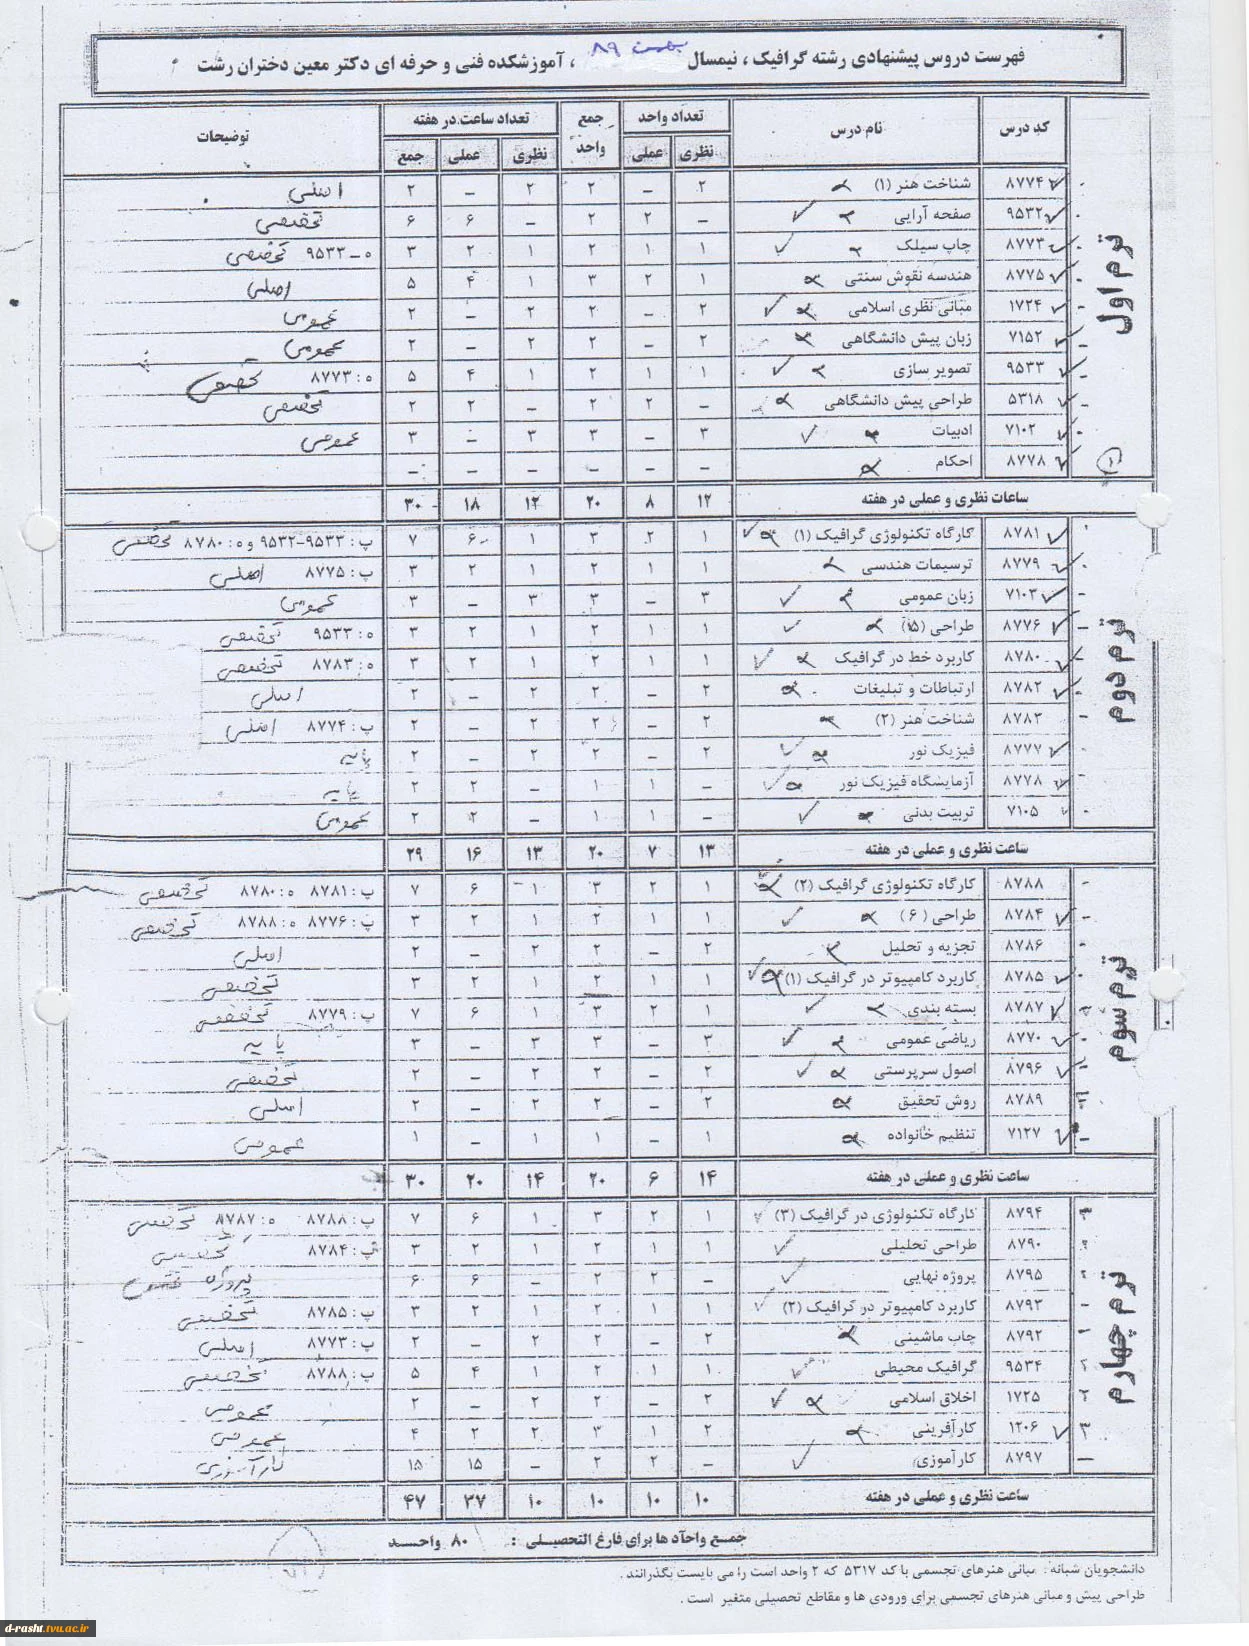 فهرست دروس پیشنهادی رشته گرافیک ، نیمسال بهمن ۸۹ ، آموزشکده فنی و حرفه ای دکتر معین دختران رشت
کد درس نام درس تعداد واحد جمع واحد تعداد ساعت در هفته توضیحات
نظری عملی نظری عملی جمع
ترم اول
۸۷۷۴ شناخت هنر (۱) ۲ – ۲ ۲ – ۲ اصلی
۹۵۳۲ صفحه آرایی – ۲ ۲ – ۶ ۶ تخصصی
۸۷۷۳ چاپ سیلک ۱ ۱ ۲ ۱ ۲ ۳ ه–۹۵۳۳ تخصصی
۸۷۷۵ هندسه نقوش سنتی ۱ ۲ ۳ ۱ ۴ ۵ اصلی
۱۷۲۴ مبانی نظری اسلامی ۲ – ۲ ۲ – ۲ عمومی
۷۱۵۲ زبان پیش دانشگاهی ۲ – ۲ ۲ – ۲ عمومی
۹۵۳۳ تصویر سازی ۱ ۱ ۲ ۱ ۴ ۵ ه: ۸۷۷۳ تخصصی
۵۳۱۸ طراحی پیش دانشگاهی – ۲ ۲ – ۲ ۲ تخصصی
۷۱۰۲ ادبیات ۳ – ۳ ۳ – ۳ عمومی
۸۷۷۸ احکام – – – –
ساعات نظری و عملی در هفته ۱۲ ۸ ۲۰ ۱۲ ۱۸ ۳۰
ترم دوم
۸۷۸۱ کارگاه تکنولوژی گرافیک (۱) ۱ ۲ ۳ ۱ ۶ ۷ پ: ۹۵۳۳–۹۵۳۲ و ه: ۸۷۸۰ تخصصی
۸۷۷۹ ترسیمات هندسی ۱ ۱ ۲ ۱ ۲ ۳ پ: ۸۷۷۵ اصلی
۷۱۰۳ زبان عمومی ۳ – ۳ ۳ – ۳ عمومی
۸۷۷۶ طراحی (۵) ۱ ۱ ۲ ۱ ۲ ۳ ه: ۹۵۳۳ تخصصی
۸۷۸۰ کاربرد خط در گرافیک ۱ ۱ ۲ ۱ ۲ ۳ ه: ۸۷۸۳ تخصصی
۸۷۸۲ ارتباطات و تبلیغات ۲ – ۲ ۲ – ۲ اصلی
۸۷۸۳ شناخت هنر (۲) ۲ – ۲ ۲ – ۲ پ: ۸۷۷۴ اصلی
۸۷۷۷ فیزیک نور ۲ – ۲ ۲ – ۲ پایه
۸۷۷۸ آزمایشگاه فیزیک نور – ۱ ۱ – ۲ ۲ پایه
۷۱۰۵ تربیت بدنی – ۱ ۱ – ۲ ۲ عمومی
ساعت نظری و عملی در هفته ۱۳ ۷ ۲۰ ۱۳ ۱۶ ۲۹
ترم سوم
۸۷۸۸ کارگاه تکنولوژی گرافیک (۲) ۱ ۲ ۳ ۱ ۶ ۷ پ: ۸۷۸۱ ه: ۸۷۸۰ تخصصی
۸۷۸۴ طراحی (۶) ۱ ۱ ۲ ۱ ۲ ۳ پ: ۸۷۷۶ ه: ۸۷۸۸ تخصصی
۸۷۸۶ تجزیه و تحلیل ۲ – ۲ ۲ – ۲ اصلی
۸۷۸۵ کاربرد کامپیوتر در گرافیک (۱) ۱ ۱ ۲ ۱ ۲ ۳ تخصصی
۸۷۸۷ بسته بندی ۱ ۲ ۳ ۱ ۶ ۷ پ: ۸۷۷۹ تخصصی
۸۷۷۰ ریاضی عمومی ۳ – ۳ ۳ – ۳ پایه
۸۷۹۶ اصول سرپرستی ۲ – ۲ ۲ – ۲ تخصصی
۸۷۸۹ روش تحقیق ۲ – ۲ ۲ – ۲ اصلی
۷۱۲۷ تنظیم خانواده ۱ – ۱ ۱ – ۱ عمومی
ساعت نظری و عملی در هفته ۱۴ ۶ ۲۰ ۱۴ ۲۰ ۳۰
ترم چهارم
۳ ۸۷۹۴ کارگاه تکنولوژی در گرافیک (۳) ۱ ۲ ۳ ۱ ۶ ۷ پ: ۸۷۸۸ ه: ۸۷۸۷ تخصصی
۲ ۸۷۹۰ طراحی تحلیلی ۱ ۱ ۲ ۱ ۲ ۳ پ: ۸۷۸۴ تخصصی
۲ ۸۷۹۵ پروژه نهایی – ۲ ۲ – ۶ ۶ پروژه
۸۷۹۳ کاربرد کامپیوتر در گرافیک (۲) ۱ ۱ ۲ ۱ ۲ ۳ پ: ۸۷۸۵ تخصصی
۸۷۹۲ چاپ ماشینی ۲ – ۲ ۲ – ۲ پ: ۸۷۷۳ اصلی
۲ ۹۵۳۴ گرافیک محیطی ۱ ۱ ۲ ۱ ۴ ۵ پ: ۸۷۸۸ تخصصی
۲ ۱۷۲۵ اخلاق اسلامی ۲ – ۲ ۲ – ۲ عمومی
۳ ۱۲۰۶ کارآفرینی ۲ ۱ ۳ ۲ ۲ ۴ عمومی
۸۷۹۷ کارآموزی – ۲ ۲ – ۱۵ ۱۵ کارآموزی
ساعت نظری و عملی در هفته ۱۰ ۱۰ ۱۰ ۱۰ ۳۷ ۴۷
جمع واحد ها برای فارغ التحصیلی : ۸۰ واحد
دانشجویان شبانه : مبانی هنرهای تجسمی با کد ۵۳۱۷ که ۲ واحد است را می بایست بگذرانند .
طراحی پیش و مبانی هنرهای تجسمی برای ورودی ها و مقاطع تحصیلی متغیر است .
d-rasht.tvu.ac.ir